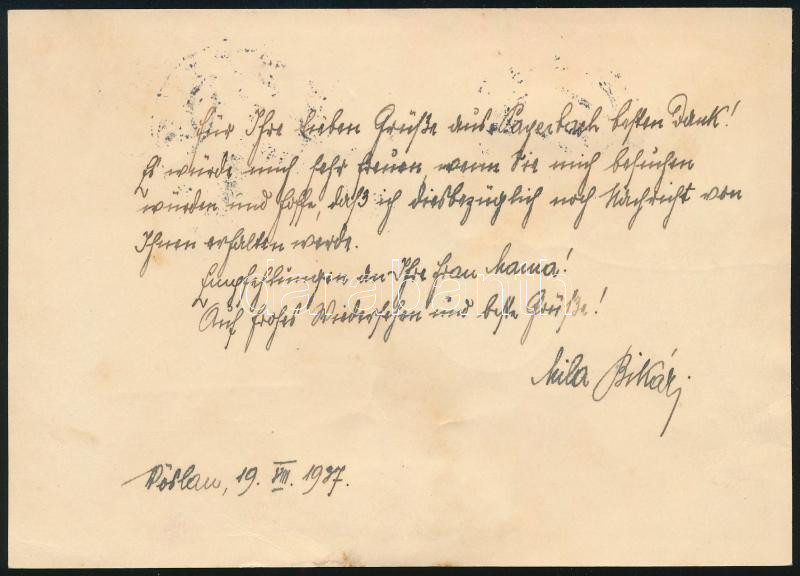 Für Ihre lieben Grüße aus Payerbach besten Dank!
Es würde mich sehr freuen, wenn Sie mich besuchen
würden und hoffe, daß ich diesbezüglich noch Nachricht von
Ihnen erhalten werde.
Empfehlungen an Ihre Frau Mama!
Auf frohes Wiedersehen und beste Grüße!
Mila Bikári
Vöslau, 19. VIII. 1937.
darabanth